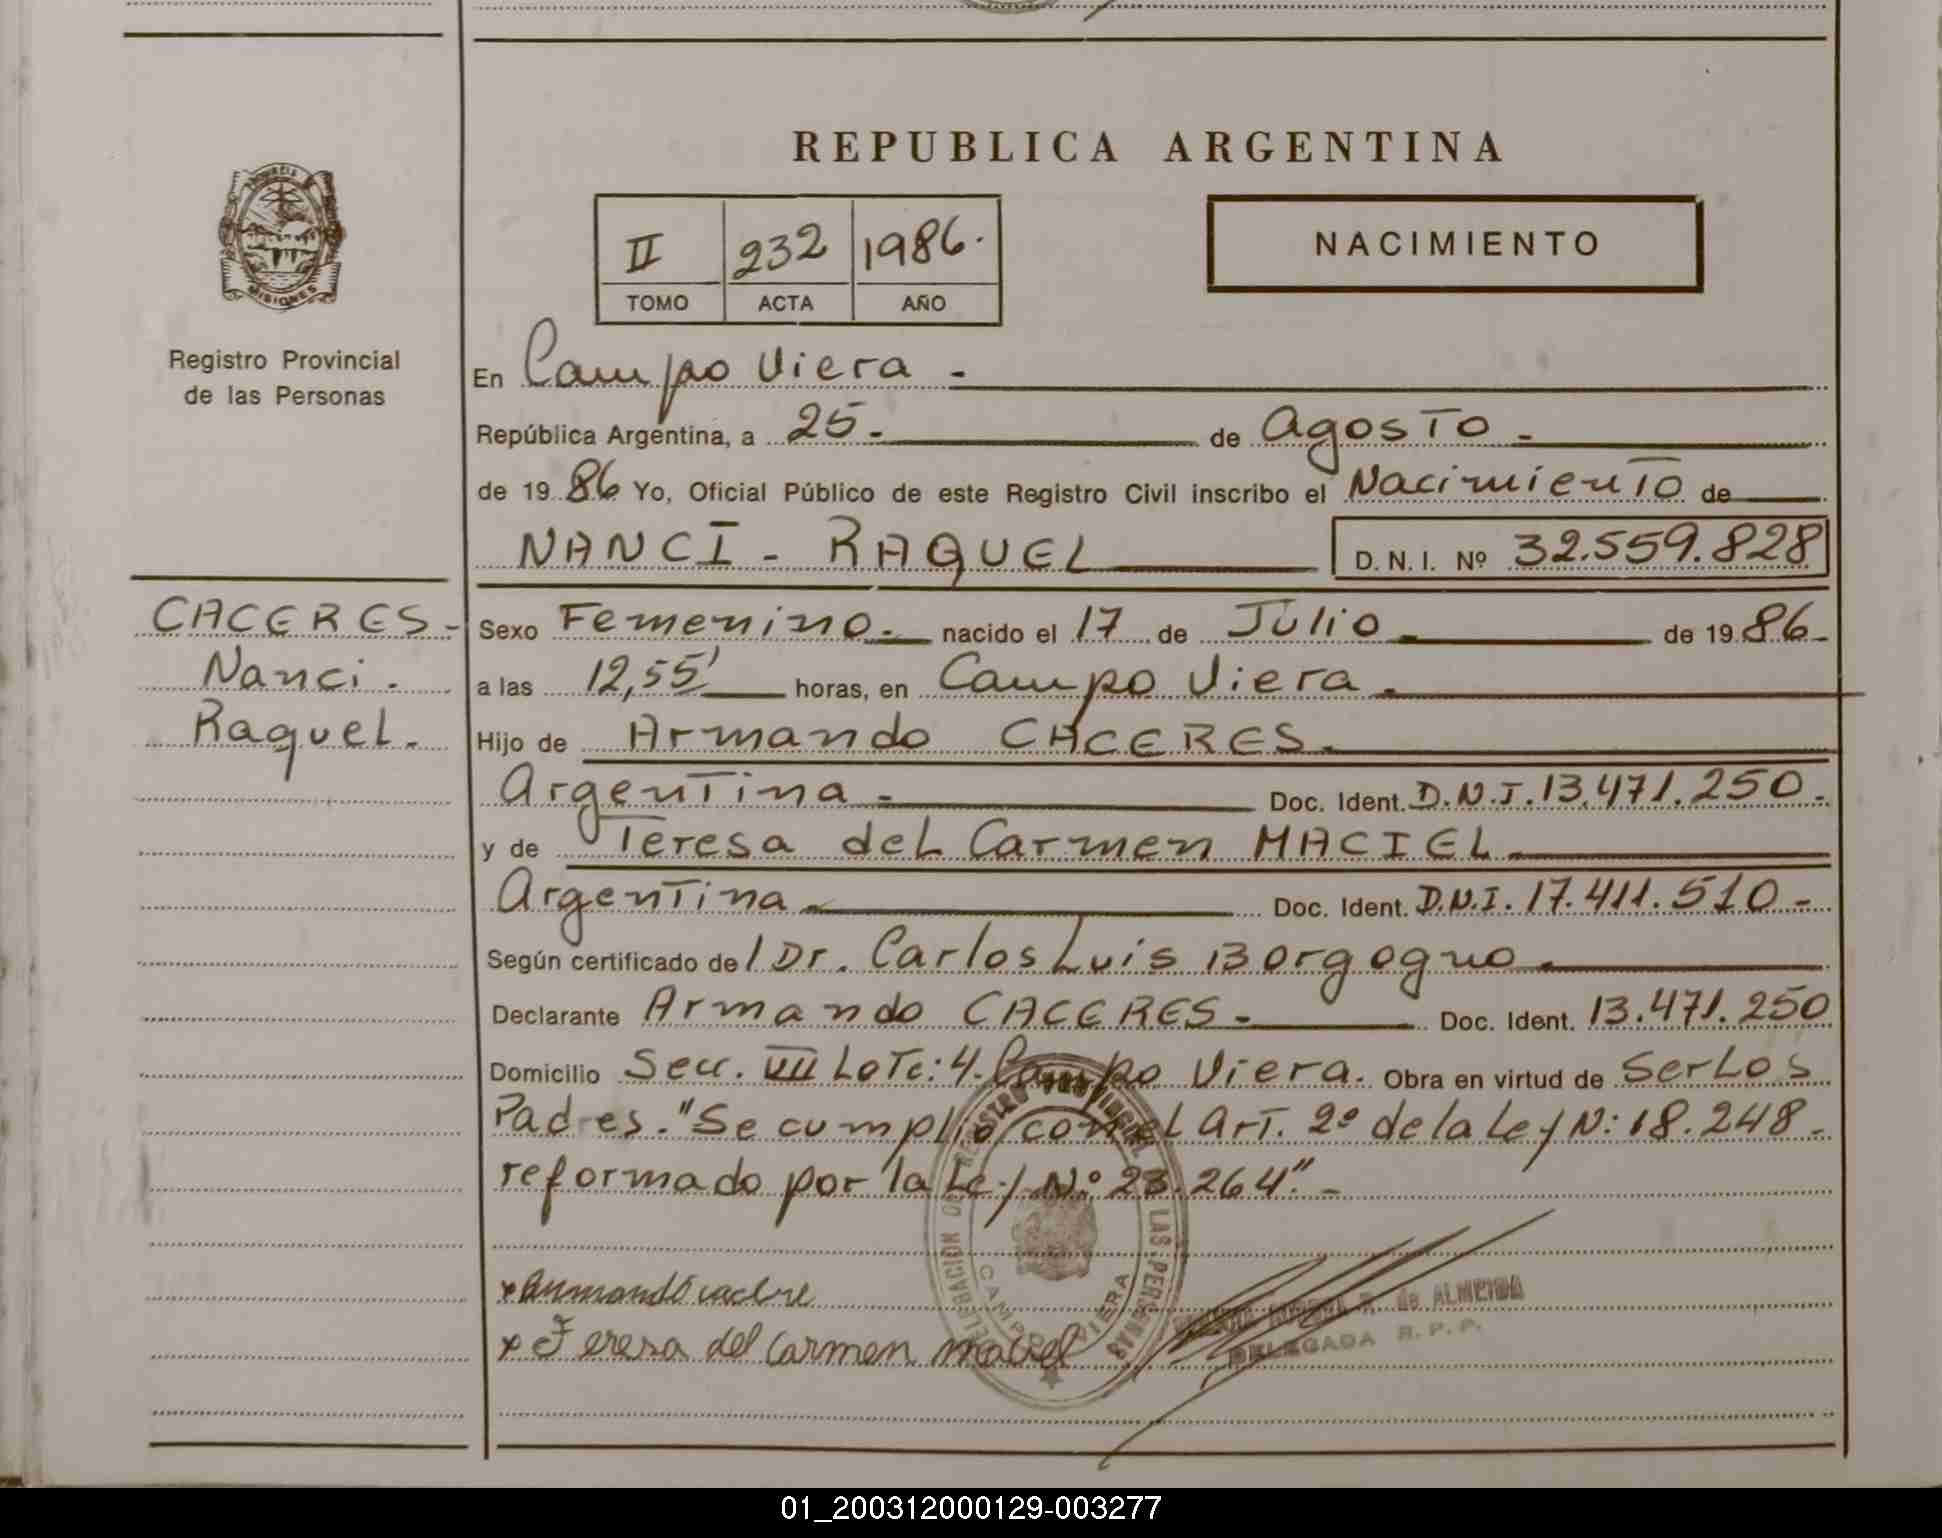 REPUBLICA ARGENTINA
PROVINCIA DE
MISIONES
Registro Provincial
de las Personas
II 232 1986.
TOMO ACTA AÑO
NACIMIENTO
En Campo Viera -
República Argentina, a 25 - de Agosto -
de 1986 Yo, Oficial Público de este Registro Civil inscribo el Nacimiento de
NANCI - RAQUEL D. N. I. Nº 32.559.828
CACERES -
Nanci.
Raquel.
Sexo Femenino. nacido el 17 de Julio de 1986 -
a las 12,55' horas, en Campo Viera.
Hijo de Armando CACERES.
Argentina - Doc. Ident. D.N.I. 13.471.250.
y de Teresa del Carmen MACIEL
Argentina Doc. Ident. D.N.I. 17.411.510 -
Según certificado del Dr. Carlos Luis Borgogno.
Declarante Armando CACERES - Doc. Ident. 13.471.250
Domicilio Secc. VII Lote: 4. Campo Viera. Obra en virtud de ser Los
Padres. "Se cumplió con el Art. 2º de la Ley N: 18.248 -
reformado por la Ley Nº 23.264". -
x Armando cacere
x Teresa del Carmen maciel
DELEGACION DEL REGISTRO PROVINCIAL DE LAS PERSONAS
CAMPO VIERA
de ALMEIDA
DELEGADA R. P. P.
01_200312000129-003277